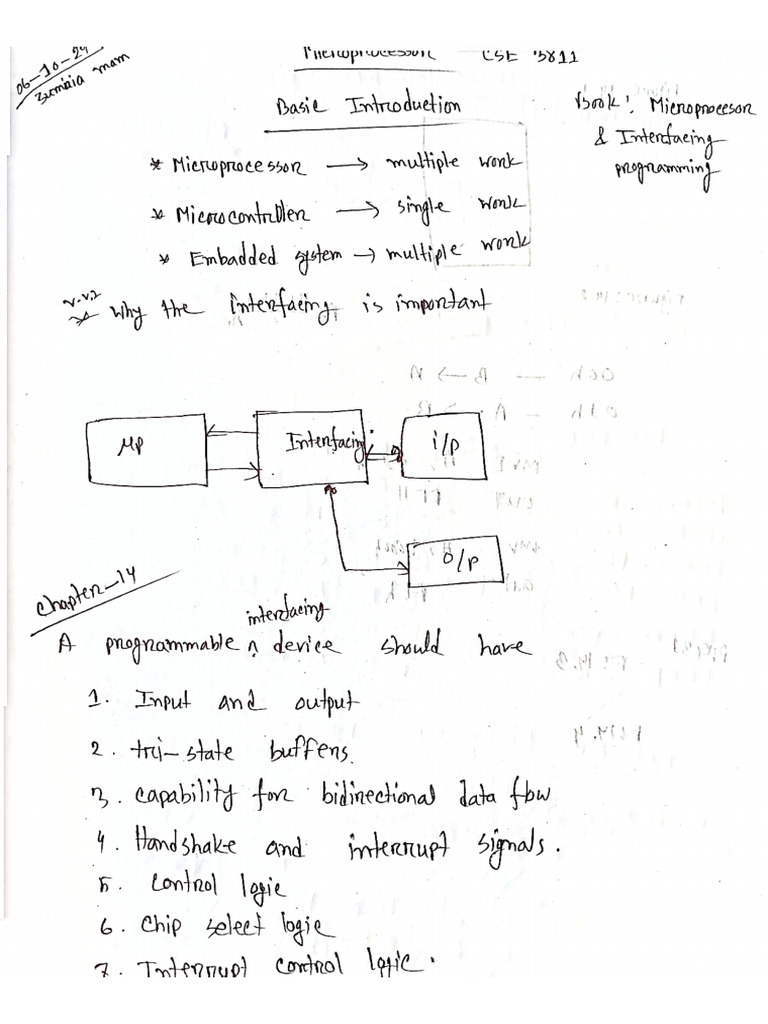 06-10-24
Sumaia mam
Microprocessor CSE 3811
Basic Introduction
Book: Microprocesor
& Interfacing
programming
* Microprocessor → multiple work
* Microcontroller → single work
* Embadded system → multiple work
* Why the interfacing is important
μp
Interfacing
i/p
o/p
Chapter-14
interfacing
A programmable ^ device should have
1. Input and output
2. tri-state buffers.
3. capability for bidirectional data flow
4. Handshake and interrupt signals.
5. control logic
6. Chip select logic
7. Interrupt control logic.